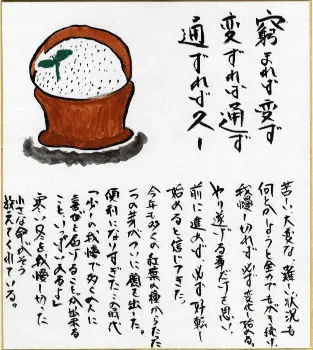 窮まれば変ず
変ずれば通ず
通ずれば久し
苦しい、大変な、難しい状況も
何とかしようと全力でもがき続け、
我慢し切れば必ず変化し始める。
やり遂げる事だけを思い、
前に進めば必ず好転し
始めると信じてきた。
今年も多くの紅葉の種からたった
二つの芽がついに顔を出した。
便利になりすぎたこの時代
「少しの我慢で多くの人に
喜びを届けることが出来る
こと、いっぱいあるよ」
寒い冬を我慢し切った
小さな命がそう
教えてくれている。